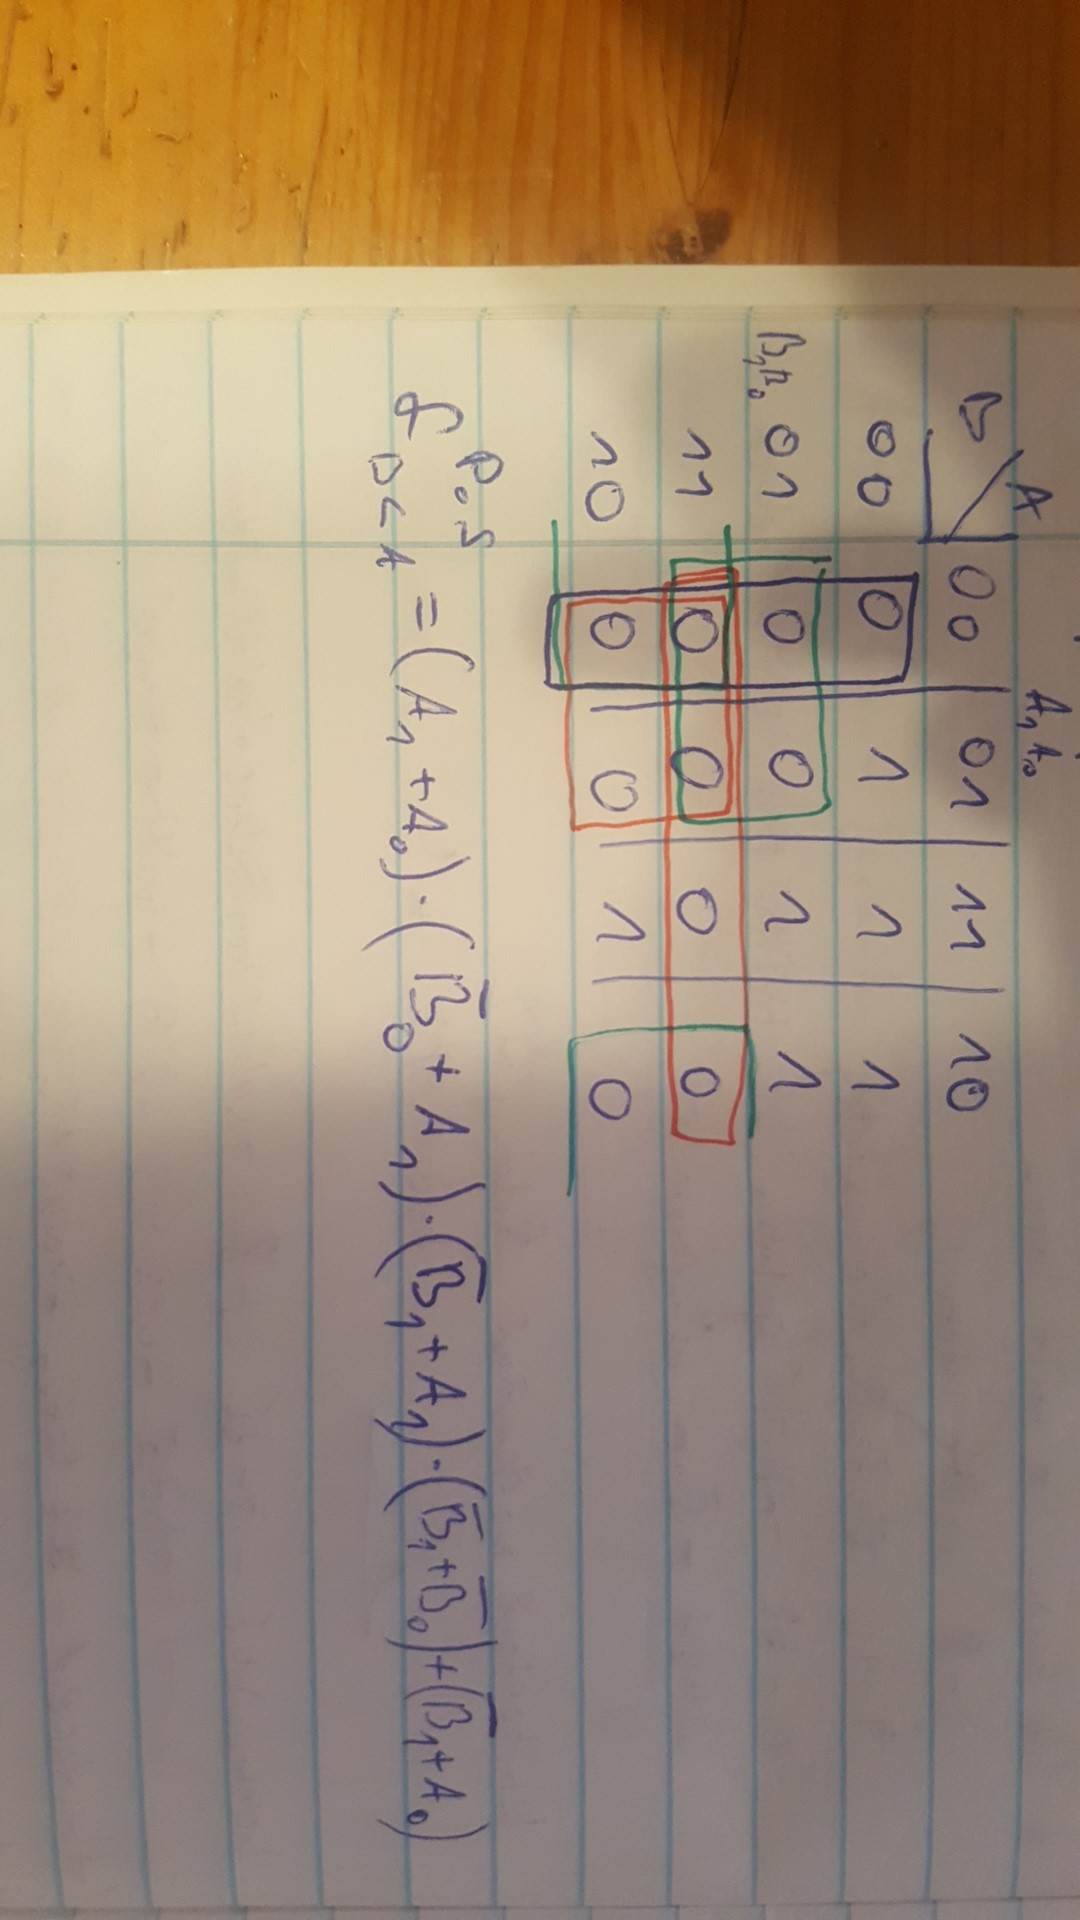 A₁A₀
B/A 00 01 11 10
00 0 1 1 1
B₁B₀ 01 0 0 1 1
11 0 0 0 0
10 0 0 1 0
P.S
f B<A = (A₁+A₀)·(B̅₀+A₁)·(B̅₁+A₁)·(B̅₁+B̅₀)+(B̅₁+A₀)